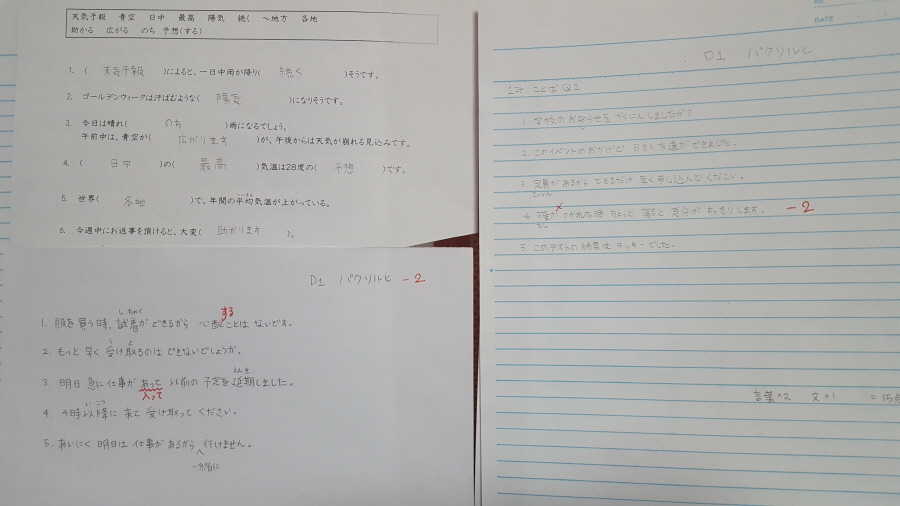 天気予報 青空 日中 最高 陽気 続く ～地方 各地
助かる 広がる のち 予想(する)
1. ( 天気予報 )によると、一日中雨が降り( 続く )そうです。
2. ゴールデンウィークは汗ばむような( 陽気 )になりそうです。
3. 今日は晴れ( のち )雨になるでしょう。
午前中は、青空が( 広がります )が、午後からは天気が崩れる見込みです。
4. ( 日中 )の( 最高 )気温は28度の( 予想 )です。
5. 世界( 各地 )で、年間の平均気温が上がっている。
へいきん
6. 今週中にお返事を頂けると、大変( 助かります )。
D1 パクソルヒ -2
1. 服を買う時、試着ができるから 心配ことは ないです。
しちゃく
する
2. もっと 早く 受け取るのは できないでしょうか。
う と
3. 明日 急に 仕事が あって 以前の 予定を 近期しました。
えんき
入って
4. 4時以降に 来て 受け取って ください。
いこう
5. あいにく 明日は 仕事が あるから 行けません。
一緒に
NO.
DATE
D1 パクソルヒ
1과 ことば Q2
1. 学校の お知らせを かくにん しましたか?
2. このイベントの おかげで 日本人 友達が できました。
3. 定員が あるから できるだけ 早く 申し込んで ください。
ていいん
4. が つかれな時 ちょっと と 気分が すっきり します。 -2
5. このテストの 結果は ラッキーでした。
言葉×2 文×1 =15点